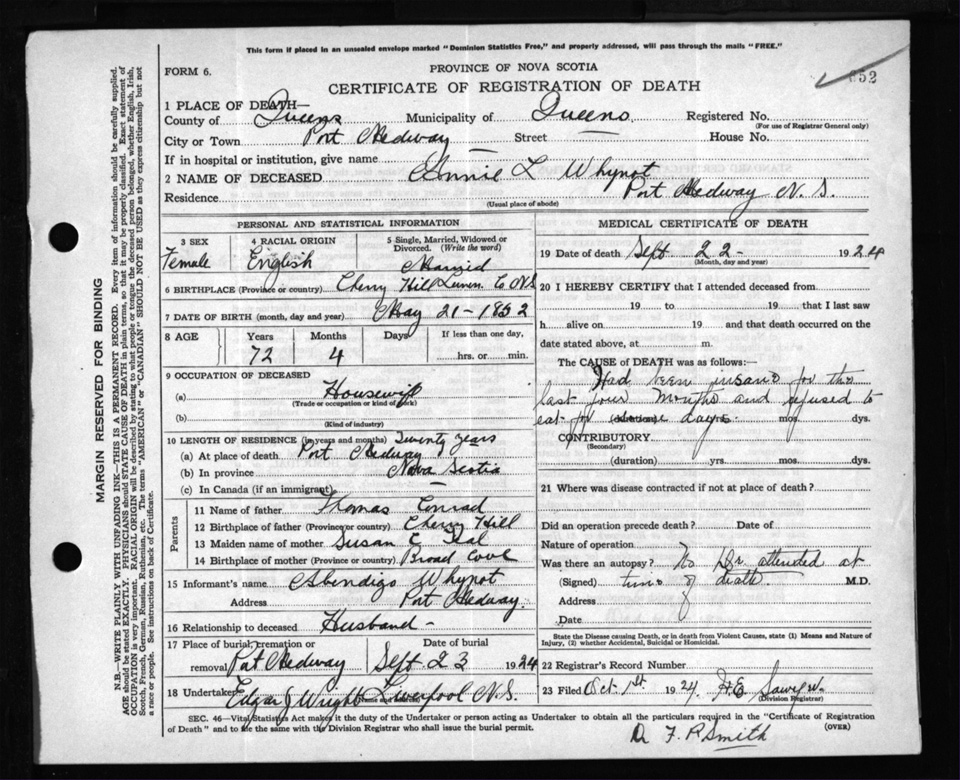 This form if placed in an unsealed envelope marked "Dominion Statistics Free," and properly addressed, will pass through the mails "FREE."
FORM 6.
PROVINCE OF NOVA SCOTIA
CERTIFICATE OF REGISTRATION OF DEATH
652
1 PLACE OF DEATH—
County of Queens Municipality of Queens Registered No.
(For use of Registrar General only)
City or Town Port Medway Street — House No.
If in hospital or institution, give name —
2 NAME OF DECEASED Annie L Whynot
Residence Port Medway N. S.
(Usual place of abode)
PERSONAL AND STATISTICAL INFORMATION
3 SEX Female
4 RACIAL ORIGIN English
5 Single, Married, Widowed or Divorced. (Write the word) Married
6 BIRTHPLACE (Province or country) Cherry Hill Lunen. Co N S
7 DATE OF BIRTH (month, day and year) May 21 - 1852
8 AGE Years 72 Months 4 Days If less than one day, hrs. or min.
9 OCCUPATION OF DECEASED
(a) Housewife
(Trade or occupation or kind of work)
(b)
(Kind of industry)
10 LENGTH OF RESIDENCE (in years and months) Twenty years
(a) At place of death Port Medway
(b) In province Nova Scotia
(c) In Canada (if an immigrant) —
Parents
11 Name of father Thomas Conrad
12 Birthplace of father (Province or country) Cherry Hill
13 Maiden name of mother Susan E Teal
14 Birthplace of mother (Province or country) Broad Cove
15 Informant's name Abendigo Whynot
Address Port Medway.
16 Relationship to deceased Husband -
17 Place of burial, cremation or removal Port Medway Date of burial Sept 23 1924
18 Undertaker Edgar J Wright Liverpool N.S.
(Name and address)
MEDICAL CERTIFICATE OF DEATH
19 Date of death Sept 22 - 1924
(Month, day and year)
20 I HEREBY CERTIFY that I attended deceased from
19 to 19 that I last saw
h alive on 19 and that death occurred on the
date stated above, at m.
The CAUSE of DEATH was as follows:—
Had been insane for the
last four months and refused to
eat for days mos. dys.
CONTRIBUTORY
(Secondary)
(duration) yrs. mos. dys.
21 Where was disease contracted if not at place of death?
Did an operation precede death? Date of
Nature of operation
Was there an autopsy? No Dr. attended at
(Signed) time of death M.D.
Address
Date
State the Disease causing Death, or in death from Violent Causes, state (1) Means and Nature of Injury, (2) whether Accidental, Suicidal or Homicidal.
22 Registrar's Record Number
23 Filed Oct 1st 1924 H.E.
(Division Registrar)
SEC. 46—Vital Statistics Act makes it the duty of the Undertaker or person acting as Undertaker to obtain all the particulars required in the "Certificate of Registration
of Death" and to file the same with the Division Registrar who shall issue the burial permit.
(OVER)
D F. P Smith
MARGIN RESERVED FOR BINDING
N.B.—WRITE PLAINLY WITH UNFADING INK—THIS IS A PERMANENT RECORD. Every item of information should be carefully supplied.
AGE should be stated EXACTLY. PHYSICIANS should STATE CAUSE OF DEATH in plain terms, so that it may be properly classified. Exact statement of
OCCUPATION is very important. RACIAL ORIGIN will be described by stating to what people or tongue the deceased person belonged, whether English, Irish,
Scotch, French, German, Russian, Ruthenian, etc. The terms "AMERICAN" or "CANADIAN" SHOULD NOT BE USED as they express citizenship but not
a race or people. See instructions on back of Certificate.